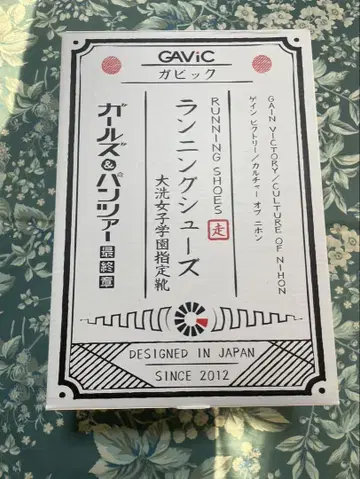 GAViC
ガビック
GAIN VICTORY/CULTURE OF NIHON
ゲイン ビクトリー/カルチャー オブ ニホン
RUNNING SHOES
走
ランニングシューズ
大洗女子学園指定靴
ガールズ&パンツァー
最終章
DESIGNED IN JAPAN
SINCE 2012